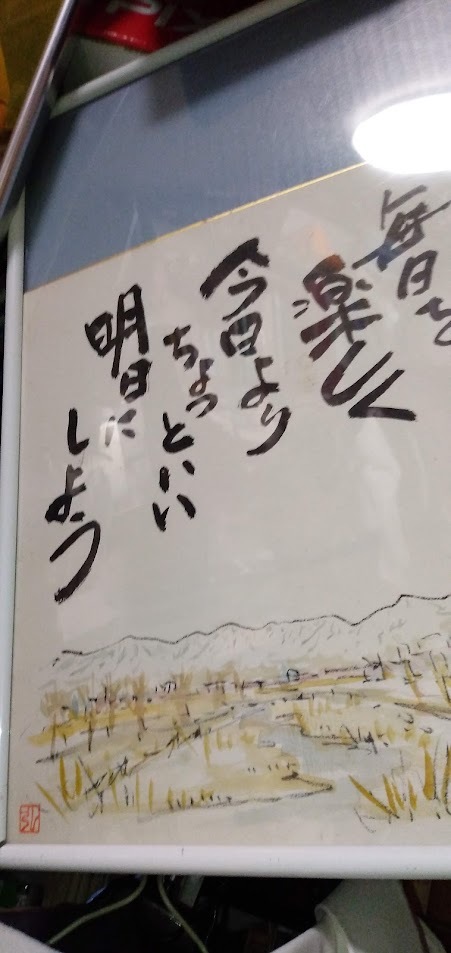 毎日を
楽しく
今日より
ちょっといい
明日に
しよう